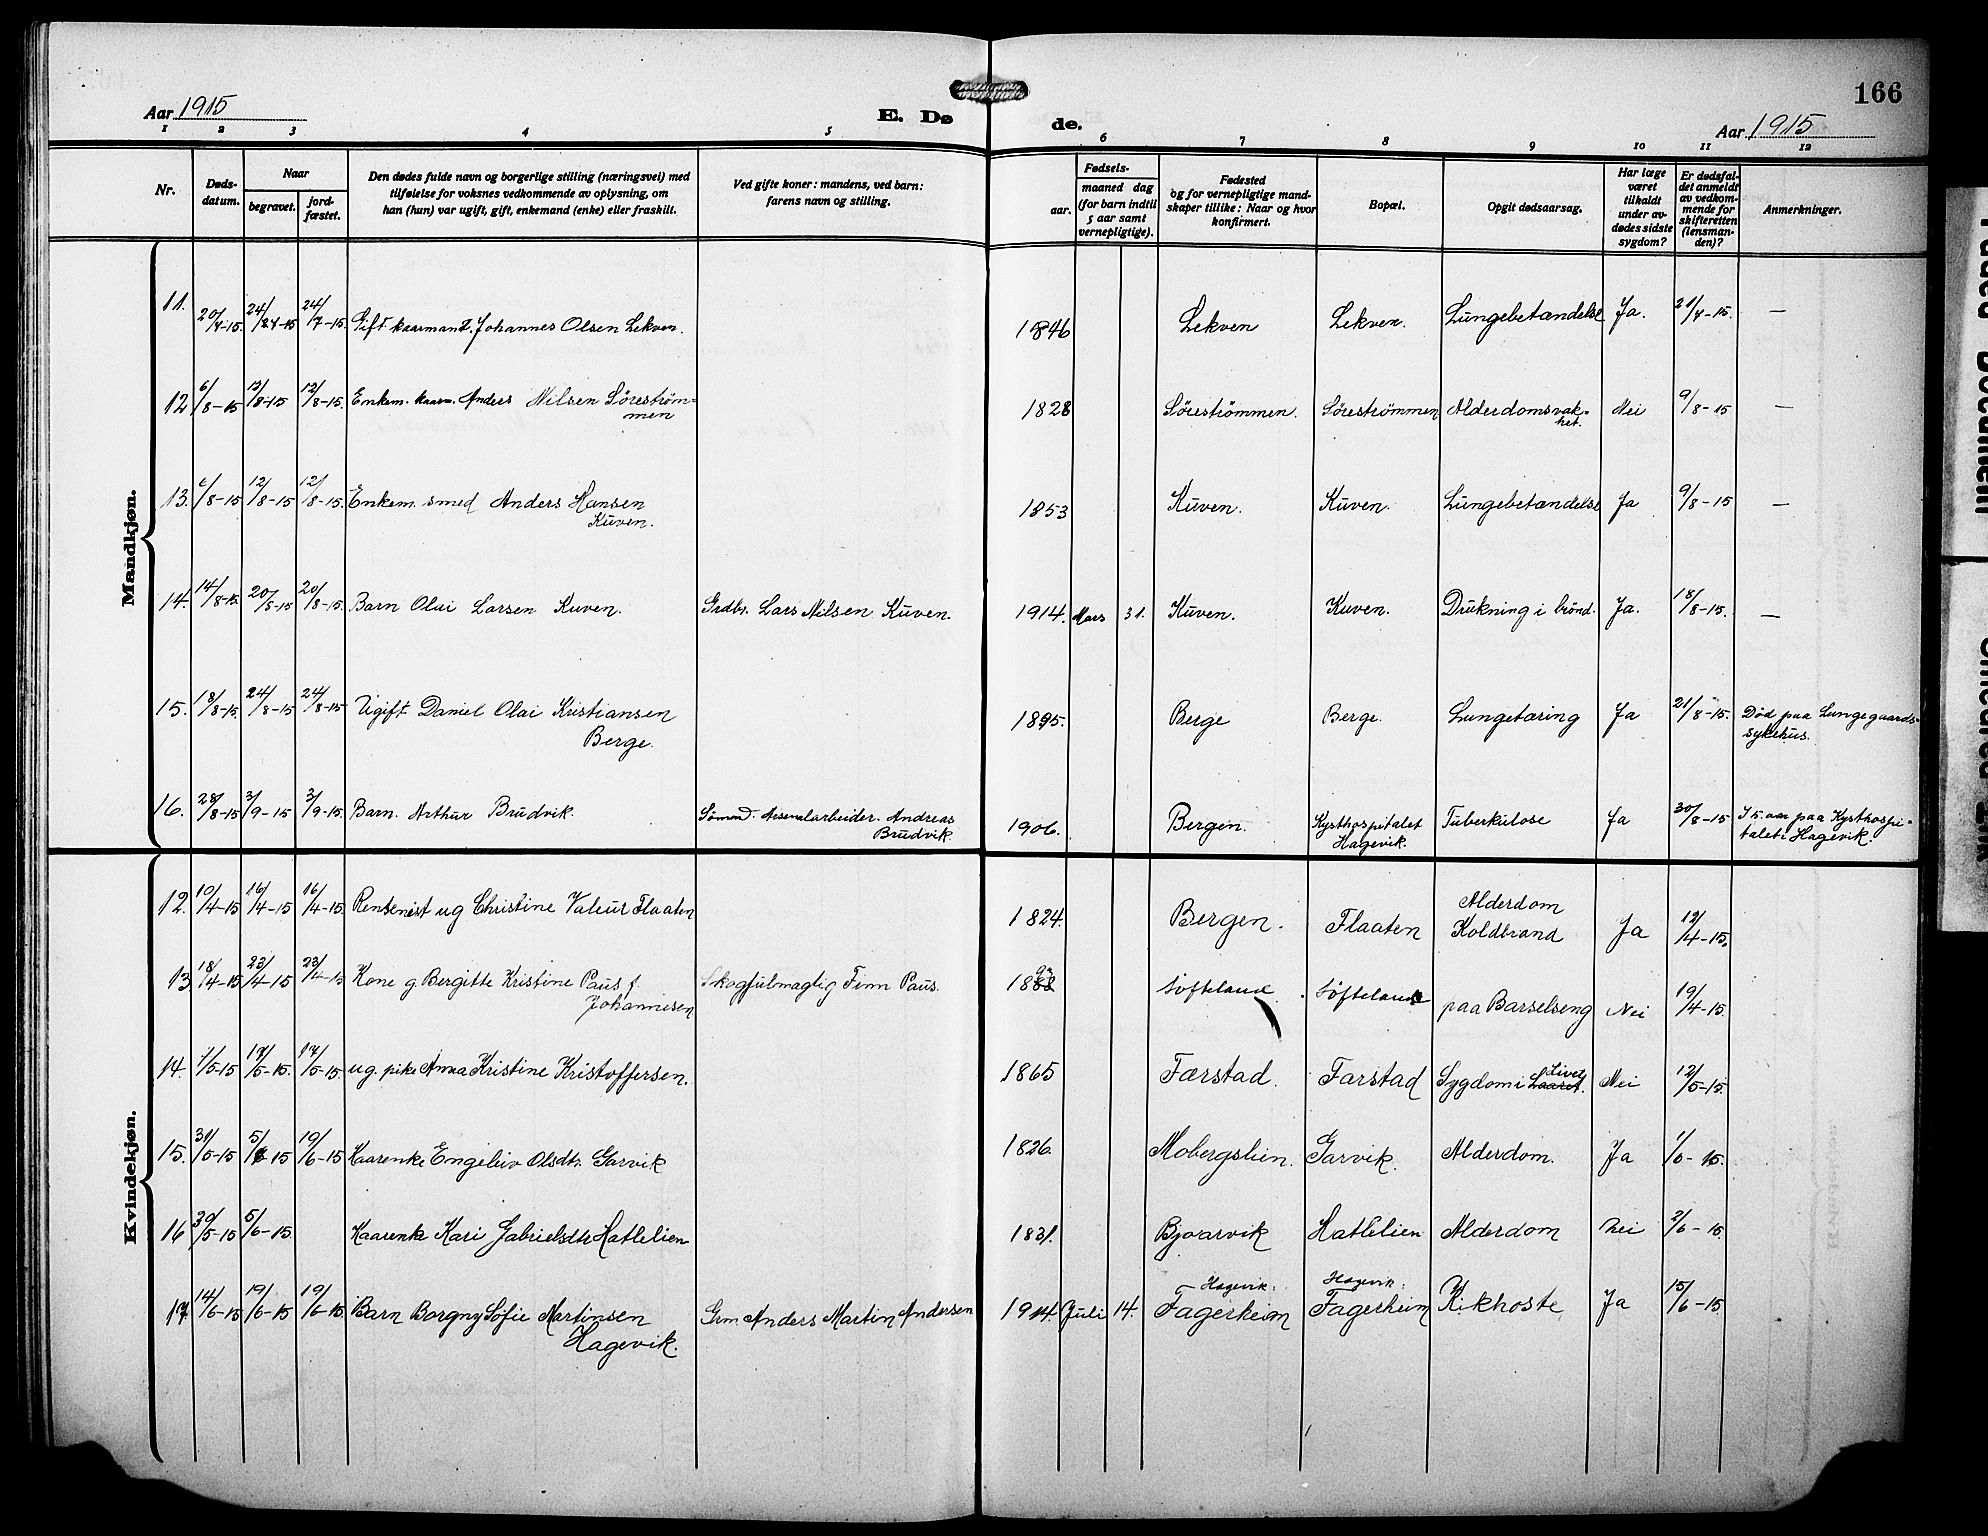 166
Aar 1915
E. Dø
de.
Aar 1915
1 2 3 4 5 6 7 8 9 10 11 12
Nr.
Døds-
datum.
Naar
begravet.
jord-
fæstet.
Den dødes fulde navn og borgerlige stilling (næringsvei) med
tilføielse for voksnes vedkommende av oplysning, om
han (hun) var ugift, gift, enkemand (enke) eller fraskilt.
Ved gifte koner: mandens, ved barn:
farens navn og stilling.
Fødsels-
aar.
maaned dag
(for barn indtil
5 aar samt
vernepligtige).
Fødested
og for vernepligtige mand-
skaper tillike: Naar og hvor
konfirmert.
Bopæl.
Opgit dødsaarsag.
Har læge
været
tilkaldt
under av-
dødes sidste
sygdom?
Er dødsfal-
det anmeldt
av vedkom-
mende for
skifteretten
(lensman-
den)?
Anmerkninger.
Mandkjøn.
11. 20/4-15. 24/24-15 24/7-15. Gift kaarmand. Johannes Olsen Lekven. 1846 Lekven Lekven. Lungebetændelse Ja. 21/4-15. —
12 6/8-15 12/8-15 12/8-15. Enkem. kaarm. Anders Nilsen Söreström-
men 1828 Söreströmmen. Söreströmmen Alderdomsvak-
het. Nei 9/8-15 —
13. 6/8-15 12/8-15 12/8-15. Enkem. smed Anders Hansen
Kuven. 1853 Kuven. Kuven. Lungebetændelse Ja 9/8-15 —
14. 14/8-15. 20/8-15 20/8-15. Barn Olai Larsen Kuven. Grdbr. Lars Nilsen Kuven. 1914. Mars 31. Kuven. Kuven. Drukning i brönd. Ja. 18/8-15. —
15. 18/8-15. 24/8-15 24/8-15 Ugift Daniel Olai Kristiansen
Berge. 1895. Berge Berge. Lungetæring Ja 21/8-15. Död paa Lungegaards-
sykehus.
16. 28/8-15 3/9-15 3/9-15. Barn. Arthur Brudvik. Sömand. Arsenalarbeider. Andreas
Brudvik. 1906. Bergen. Kysthospitalet
Hagevik. Tuberkulose Ja 30/8-15 I 5. aar paa Kysthospi-
talet i Hagevik.
Kvindekjøn.
12. 10/4-15 16/4-15 16/4-15. Rentenist ug Christine Valeur Flaaten 1824. Bergen. Flaaten Alderdom
Koldbrand Ja 12/4-15.
13 18/4-15 23/4-15 23/4-15 Kone g Bergitte Kristine Paus f.
Johannesen Skogfulmagtig Finn Paus. 1888 Söfteland Söfteland paa Barselseng Nei 19/4-15.
14. 11/5-15 17/5-15. 17/5-15. ug. pike Anna Kristine Kristoffersen. 1865 Færstad. Farstad Sygdom i Laaret. Livet Nei 12/5-15.
15. 31/5-15 5/6 15 19/6-15 Kaarenke Engeleiv Olsdtr. Garvik 1826. Mobergslien. Garvik. Alderdom. Ja 1/6-15.
16 30/5-15 5/6-15. Kaarenke Kari Gabrielsdtr Hatlelien 1831. Bjaarvik Hatlelien Alderdom Nei 2/6-15.
17. 14/6-15 19/6-15 19/6-15. Barn Borgny Sofie Martinsen
Hagevik. Grm. Anders Martin Andersen 1914. Juli 14. Hagevik:
Fagerheim Hagevik:
Fagerheim Kikhoste. Ja 15/6-15